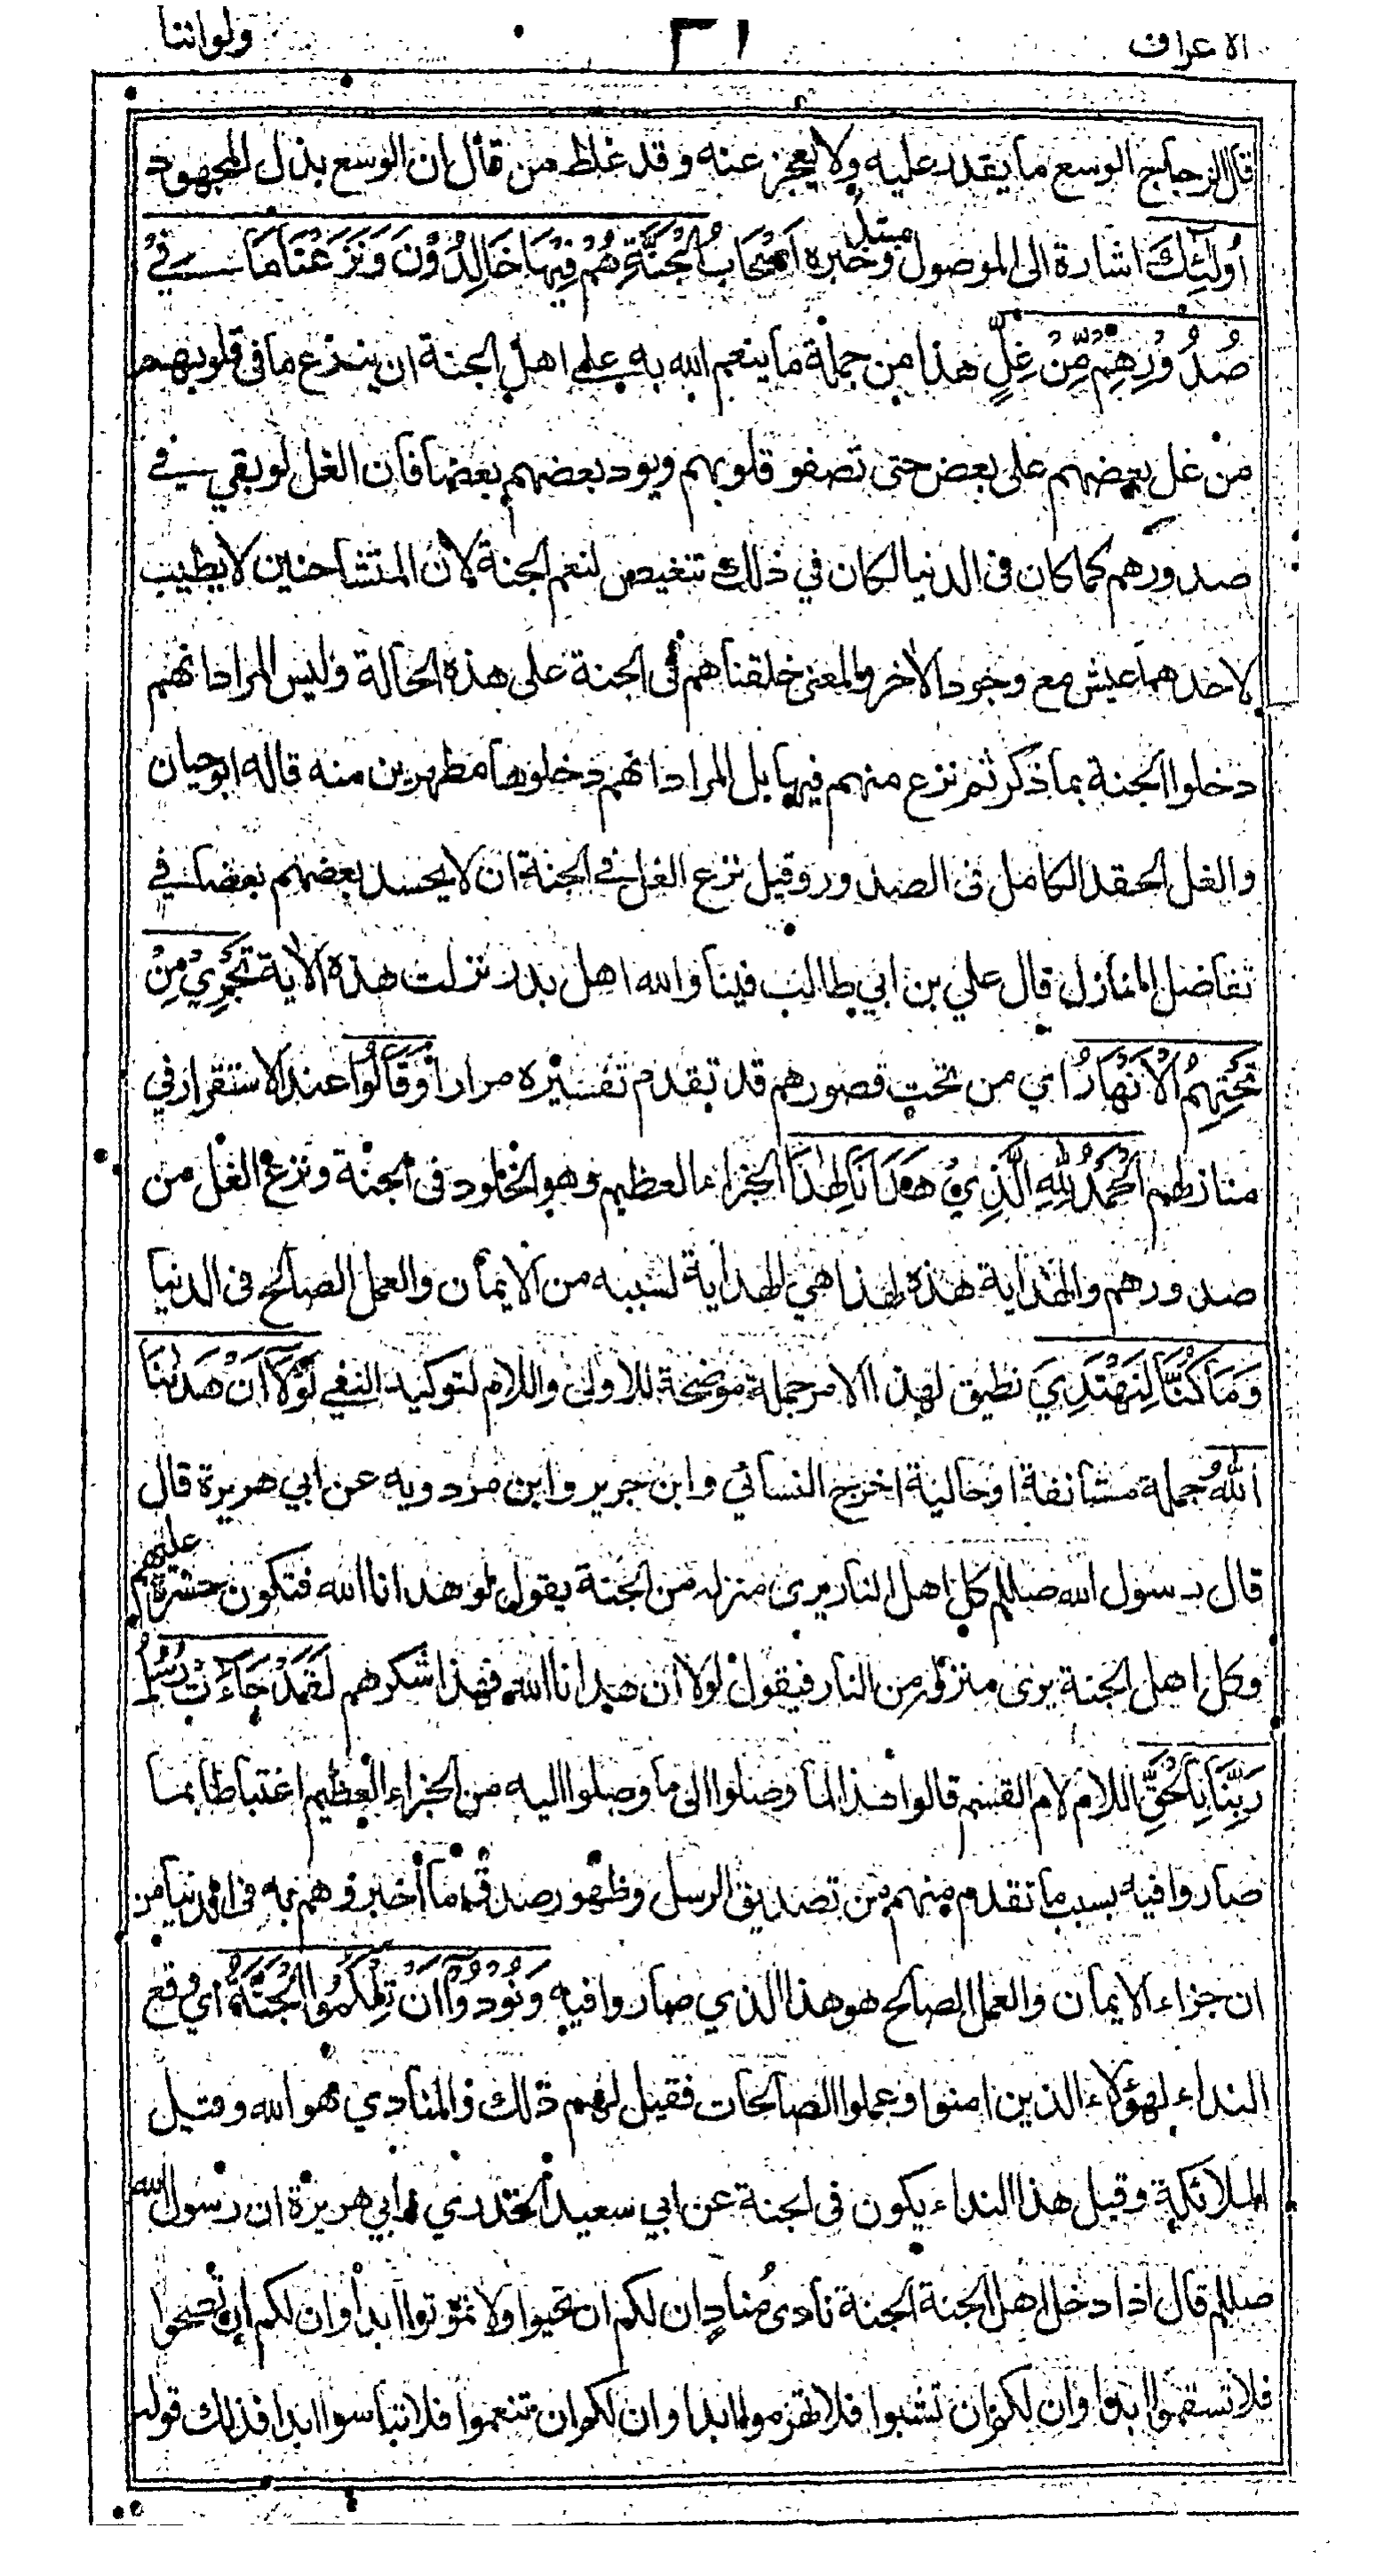 الاعراف ٣١ ولواننا
قال الزجاج الوسع ما يقدر عليه ولا يعجز عنه وقد غلط من قال ان الوسع بذل المجهود
أُولَٰئِكَ اشارة الى الموصول مبتدأ وخبره أَصْحَابُ الْجَنَّةِ هُمْ فِيهَا خَالِدُوْنَ وَنَزَعْنَا مَا فِيْ
صُدُوْرِهِمْ مِّنْ غِلٍّ هذا من جملة ما ينعم الله به على اهل الجنة ان ينزع ما فى قلوبهم
من غل بعضهم على بعض حتى تصفو قلوبهم ويود بعضهم بعضا فان الغل لو بقي في
صدورهم كما كان فى الدنيا لكان في ذلك تنغيص لنعم الجنة لأن المتشاحنين لا يطيب
لاحدهما عيش مع وجود الأخر والمعنى خلقناهم فى الجنة على هذه الحالة وليس المراد انهم
دخلوا الجنة بما ذكر ثم نزع منهم فيها بل المراد انهم دخلوها مطهرين منه قاله ابو حيان
والغل الحقد الكامل فى الصدور وقيل نزع الغل في الجنة ان لا يحسد بعضهم بعضا في
تفاضل المنازل قال علي بن ابي طالب فينا والله اهل بدر نزلت هذه الأية تَجْرِيْ مِنْ
تَحْتِهِمُ الْأَنْهَارُ اي من تحت قصورهم قد تقدم تفسيره مرارا وَقَالُوا عند الاستقرار في
منازلهم الْحَمْدُ لِلّٰهِ الَّذِيْ هَدَانَا لِهٰذَا الجزاء العظيم وهو الخلود فى الجنة ونزع الغل من
صدورهم والهداية هذه لهذا هي الهداية لسببه من الايمان والعمل الصالح فى الدنيا
وَمَا كُنَّا لِنَهْتَدِيَ نطيق لهذا الامر جملة موضحة للاولى واللام لتوكيد النفي لَوْلَا أَنْ هَدٰىنَا
اللّٰهُ جملة مستانفة او حالية اخرج النسائي وابن جرير وابن مردويه عن ابي هريرة قال
قال رسول الله صللم كل اهل النار يرى منزله من الجنة يقول لو هدانا الله فتكون حسرة عليهم
وكل اهل الجنة يرى منزله من النار فيقول لولا ان هدانا الله فهذا شكرهم لَقَدْ جَاءَتْ رُسُلُ
رَبِّنَا بِالْحَقِّ اللام لام القسم قالوا هذا لما وصلوا الى ما وصلوا اليه من الجزاء العظيم اغتباطا بما
صاروا فيه بسبب ما تقدم منهم من تصديق الرسل وظهور صدق ما أخبروهم به فى الدنيا من
ان جزاء الايمان والعمل الصالح هو هذا الذي صاروا فيه وَنُوْدُوْا أَنْ تِلْكُمُ الْجَنَّةُ اي وقع
النداء لهؤلاء الذين امنوا وعملوا الصالحات فقيل لهم ذلك والمنادي هو الله وقيل
الملائكة وقيل هذا النداء يكون فى الجنة عن ابي سعيد الخدري وابي هريرة ان رسول الله
صللم قال اذا دخل اهل الجنة الجنة نادى منادٍ ان لكم ان تحيوا ولا تموتوا ابدا وان لكم ان تصحوا
فلا تسقموا ابدا وان لكم ان تشبوا فلا تهرموا ابدا وان لكم ان تنعموا فلا تبأسوا ابدا فذلك قوله